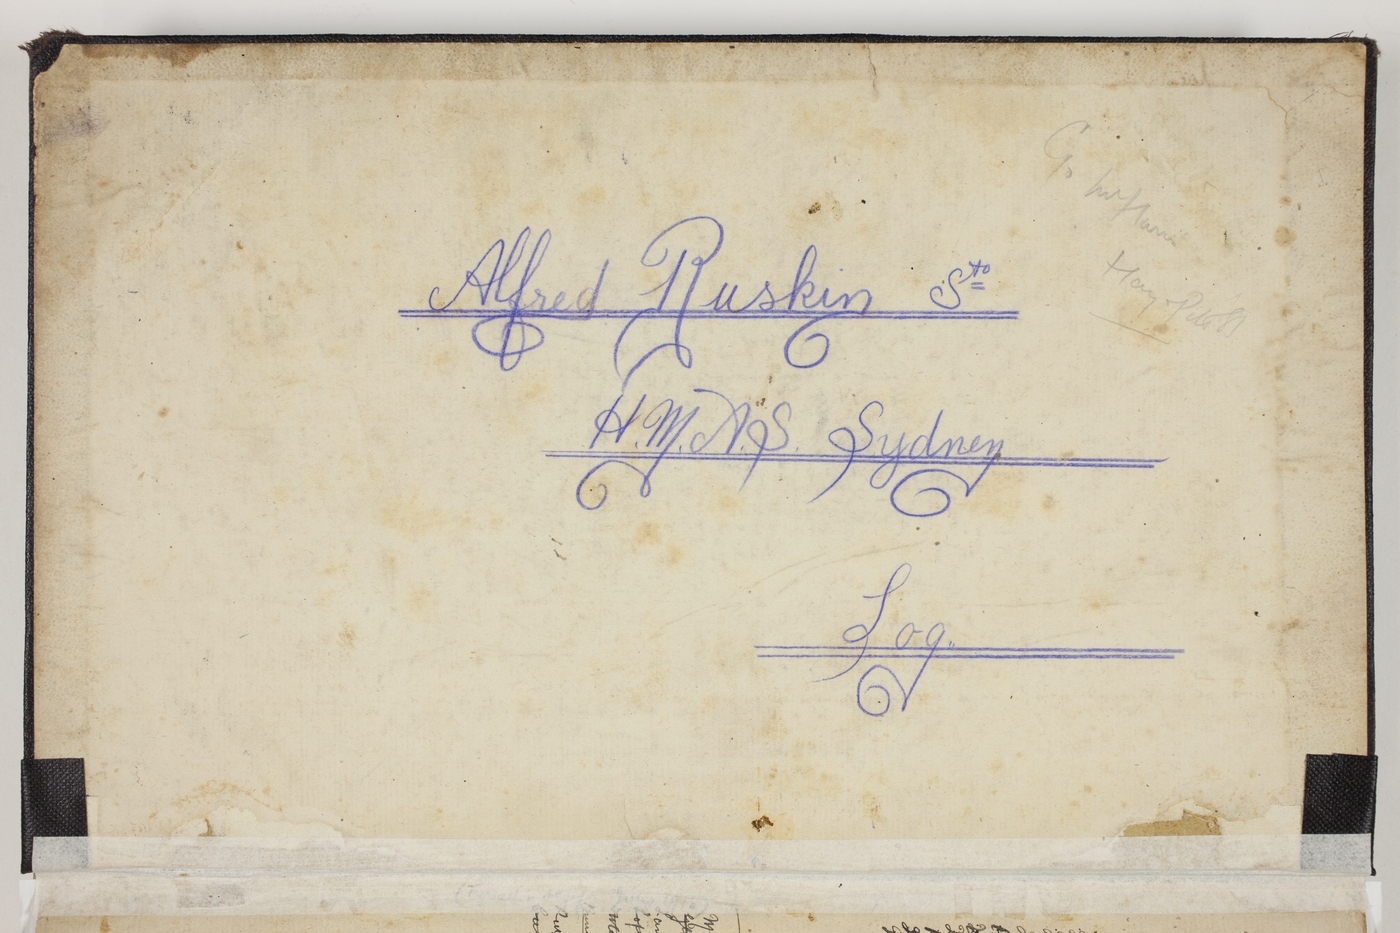 Alfred Ruskin Sto
H.M.A.S. Sydney
Log.